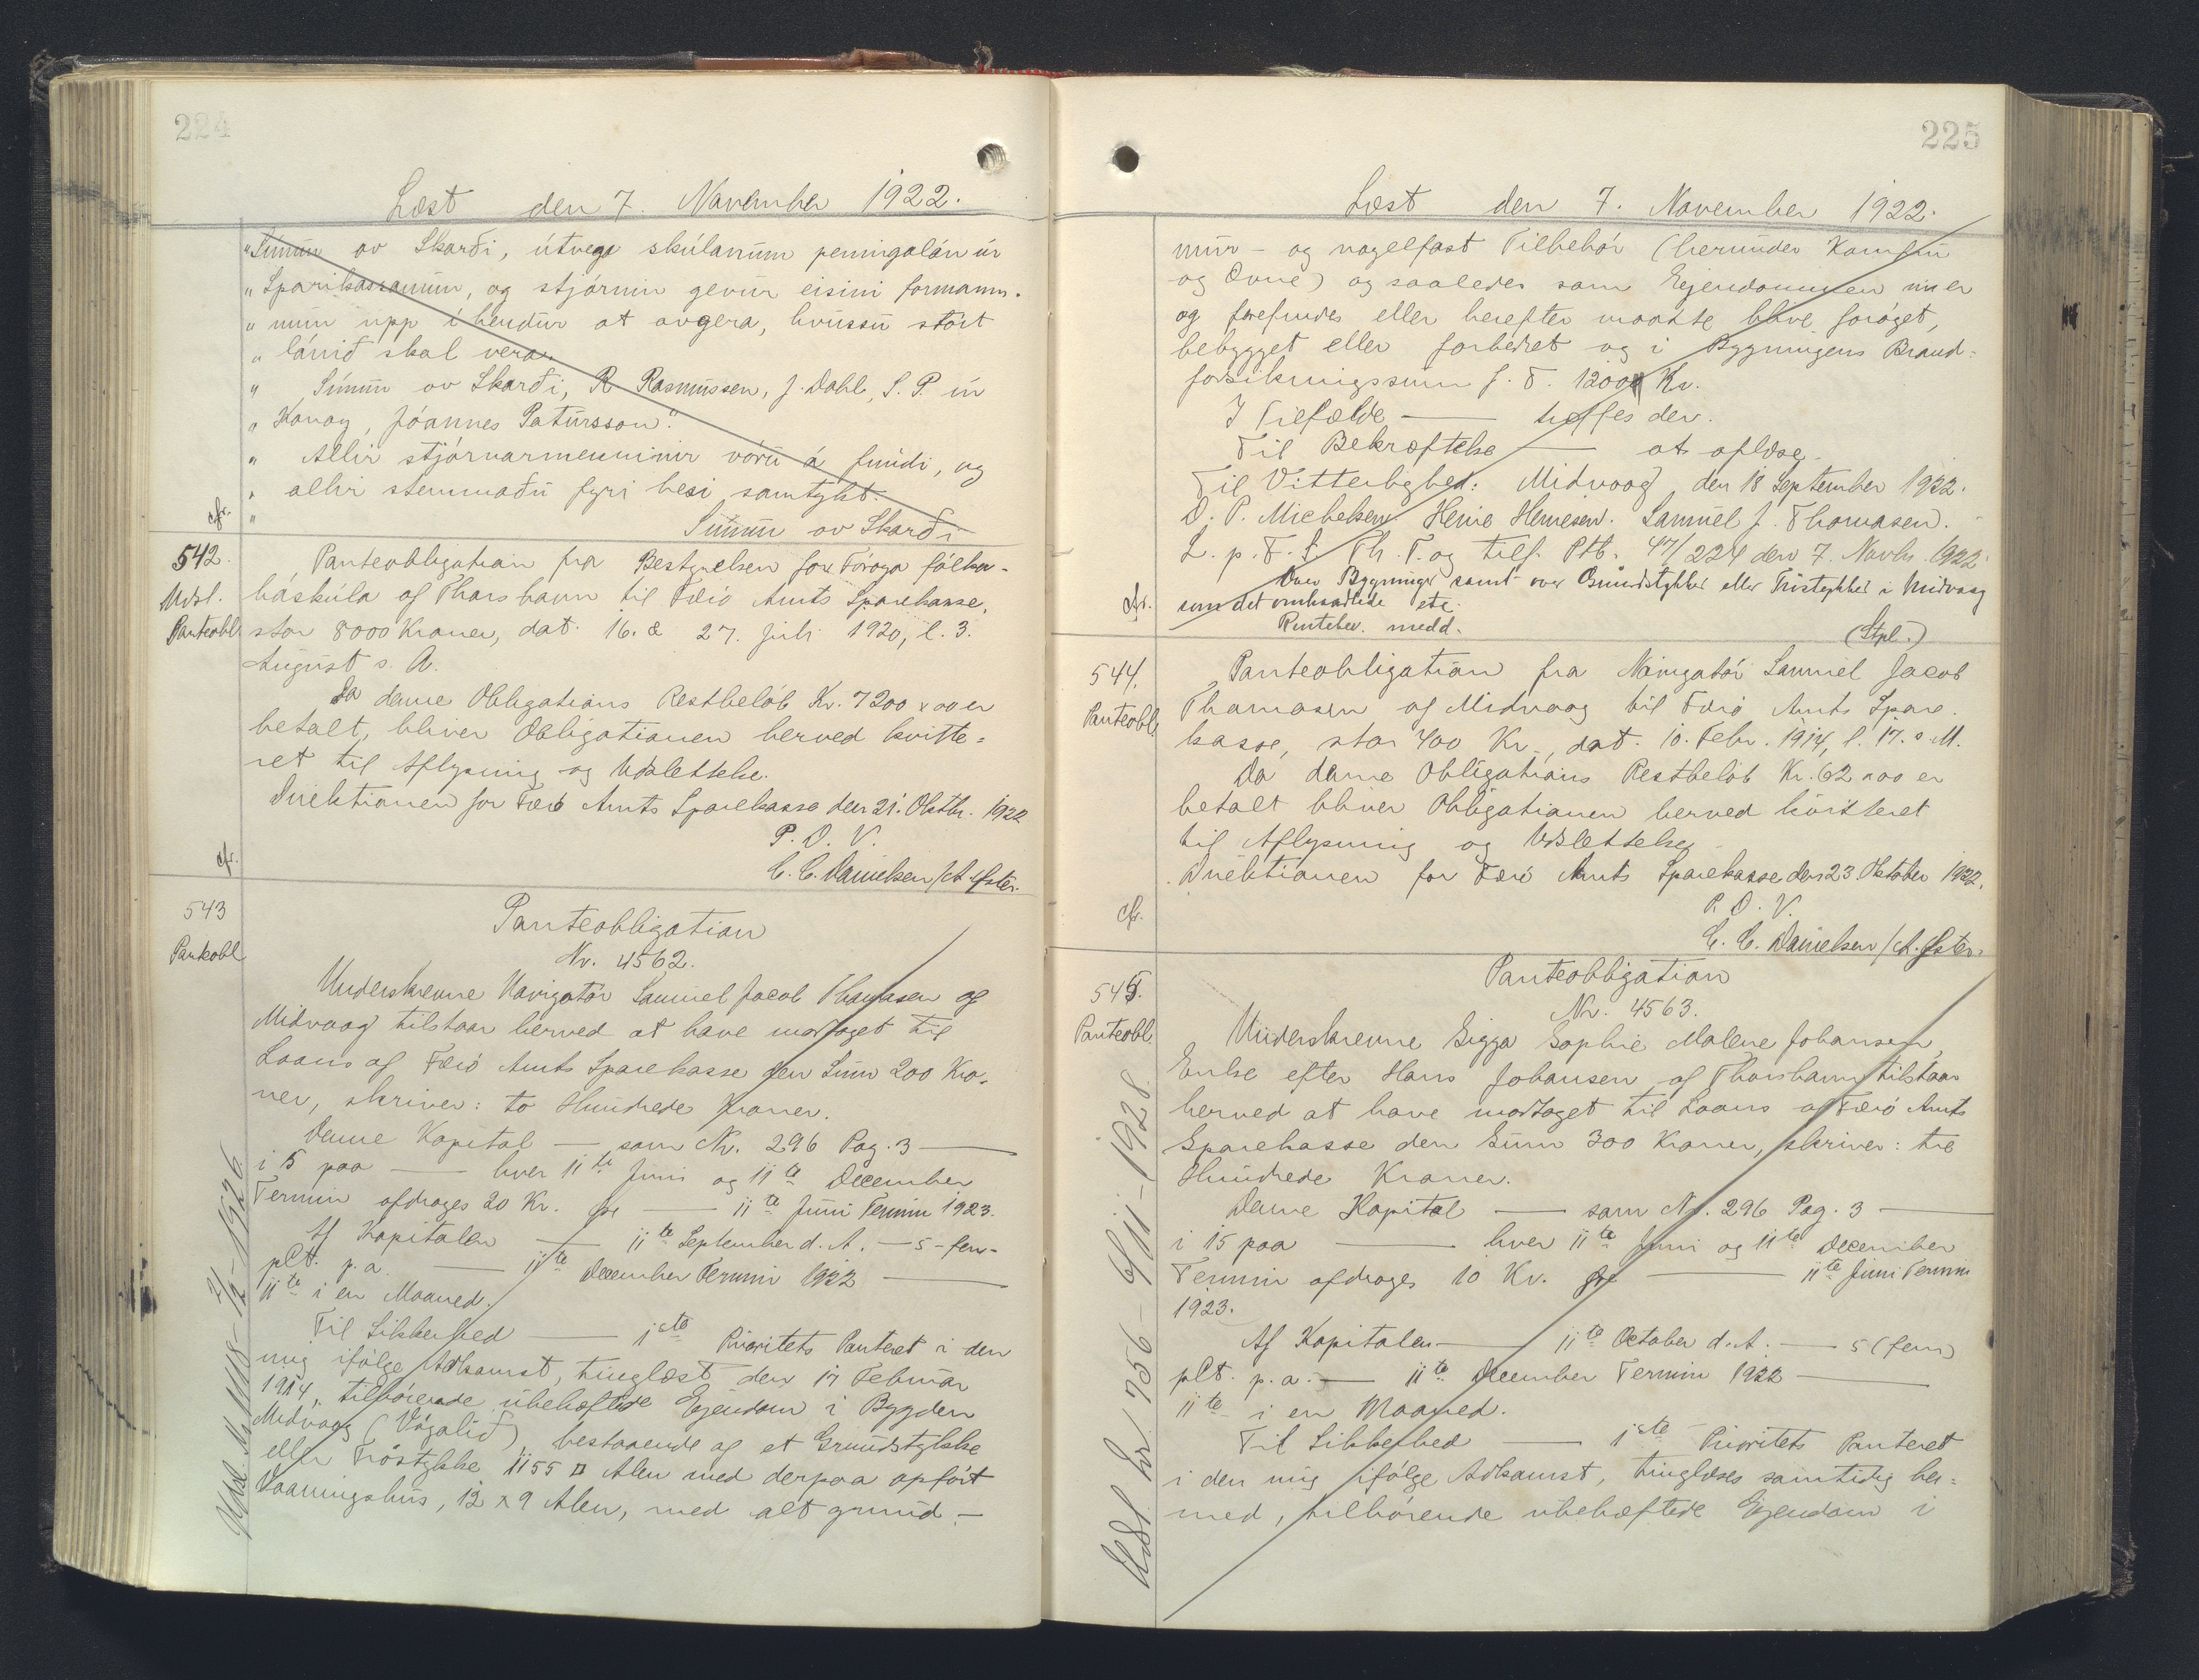 224
Læst den 7. November 1922.
"Símun av Skarði, útvega skúlanum peningalán úr
" Sparikassanum, og stjórnin gevur eisini formann-
" num upp í hendur at avgera, hvussu stórt
" lánið skal vera.
" Símun av Skarði, R Rasmussen, J. Dahl, S. P. úr
" Konoy, Jóannes Patursson."
" Allir stjórnarmenninir vóru á fundi, og
" allir stemmaðu fyri hesi samtykt.
" Símun av Skarði
cfr.
542.
Udsl.
Panteobl.
Panteobligation fra Bestyrelsen for Föroya fólka-
háskúla af Thorshavn til Færö Amts Sparekasse,
stor 8000 Kroner, dat. 16. & 27. Juli 1920, l. 3.
August s. A.
Da denne Obligations Restbelöb Kr. 7200 x 00 er
betalt, bliver Obligationen herved kvitte=
ret til Aflysning og Udslettelse.
Direktionen for Færö Amts Sparekasse den 21. Oktbr. 1922
P. D. V.
C. C. Danielsen / A. Öster.
cfr.
543
Panteobl
Panteobligation
Nr. 4562.
Underskrevne Navigatör Samuel Jacob Thomasen af
Midvaag tilstaar herved at have modtaget til
Laans af Færö Amts Sparekasse den Sum 200 Kro-
ner, skriver: to Hundrede Kroner.
Denne Kapital — som Nr. 296 Pag. 3 —
i 5 paa — hver 11te Juni og 11te December
Termin afdrages 20 Kr. — 11te Juni Termin 1923.
Af Kapitalen — 11te September d. A. — 5 - fem-
pCt. p. a. — 11te December Termin 1922 —
11te i en Maaned.
Til Sikkerhed — 1ste Prioritets Panteret i den
mig ifölge Adkomst, tinglæst den 17 Februar
1914, tilhörende ubehæftede Ejendom i Bygden
Midvaag (Vágalið) bestaaende af et Grundstykke
eller Tröstykke 1155 □ Alen med derpaa opfört
Vaaningshus, 12 x 9 Alen, med alt grund-
Udsl. Nr. 1118 - 2/12 - 1926
225
Læst den 7. November 1922.
mur- og nagelfast Tilbehör (herunder Komfur
og Ovne) og saaledes som Ejendommen nu er
og forefindes eller herefter maatte blive foröget,
bebygget eller forbedret og i Bygningens Brand=
forsikringssum f. T. 1200 Kr.
I Tilfælde — træffes der.
Til Bekræftelse — at aflæse.
Til Vitterlighed: Midvaag, den 18 September 1922.
D. P. Michelsen. Heine Heinesen. Samuel J. Thomasen.
L. p. F. S. Th. T. og tilf. Ptb. 47/224 den 7. Novbr. 1922
Over Bygninger samt over Grundstykket eller Tröstykket i Midvaag
som det omhandlede etc.
Rentebev. medd.
(Stpl.)
cfr.
544.
Panteobl.
Panteobligation fra Navigatör Samuel Jacob
Thomasen af Midvaag til Færö Amts Spare-
kasse, stor 400 Kr., dat. 10. Febr. 1914, l. 17. s. M.
Da denne Obligations Restbelöb Kr. 62 x 00 er
betalt bliver Obligationen herved kvitteret
til Aflysning og Udslettelse
Direktionen for Færö Amts Sparekasse den 23. Oktober 1922.
P. D. V.
C. C. Danielsen / A. Öster.
cfr.
545.
Panteobl.
Panteobligation
Nr. 4563.
Underskrevne Sigga Sophie Malene Johansen,
Enke efter Hans Johansen af Thorshavn tilstaar
herved at have modtaget til Laans af Færö Amts
Sparekasse den Sum 300 Kroner, skriver: tre
Hundrede Kroner.
Denne Kapital — som Nr. 296 Pag. 3 —
i 15 paa — hver 11te Juni og 11te December
Termin afdrages 10 Kr. — 11te Juni Termin
1923.
Af Kapitalen — 11te October d. A. — 5 (fem)
pCt. p. a. — 11te December Termin 1922 —
11te i en Maaned.
Til Sikkerhed — 1ste Prioritets Panteret
i den mig ifölge Adkomst, tinglæses samtidig her=
med, tilhörende ubehæftede Ejendom i
Udsl. Nr. 756 - 6/11 - 1928